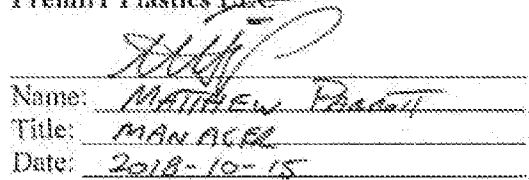 Plastics
Name: MATTHEW
Title: MANAGER
Date: 2018-10-15